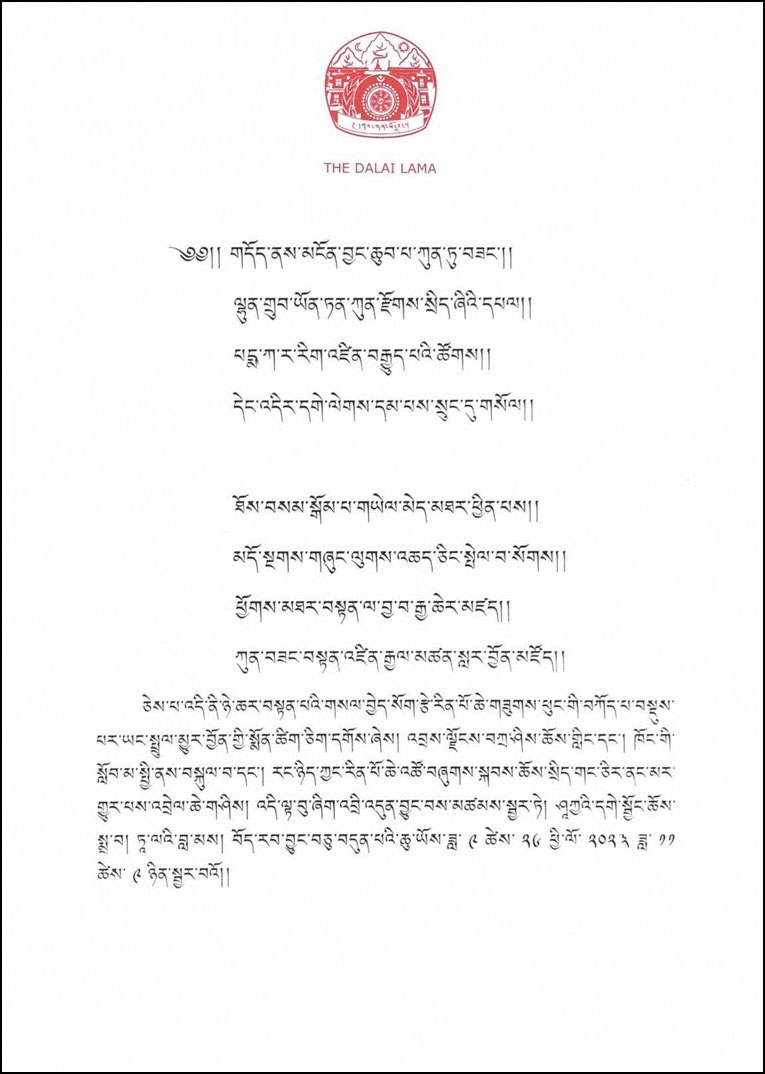 THE DALAI LAMA
༄༅།། གདོད་ནས་མངོན་བྱང་ཆུབ་པ་ཀུན་ཏུ་བཟང་།།
ལྷུན་གྲུབ་ཡོན་ཏན་ཀུན་རྫོགས་སྲིད་ཞིའི་དཔལ།།
པདྨ་ཀ་ར་རིག་འཛིན་བརྒྱུད་པའི་ཚོགས།།
དེང་འདིར་དགེ་ལེགས་དམ་པས་སྲུང་དུ་གསོལ།།
ཐོས་བསམ་སྒོམ་པ་གཡེལ་མེད་མཐར་ཕྱིན་པས།།
མདོ་སྔགས་གཞུང་ལུགས་འཆད་ཅིང་སྤེལ་བ་སོགས།།
ཕྱོགས་མཐར་བསྟན་ལ་བྱ་བ་རྒྱ་ཆེར་མཛད།།
ཀུན་བཟང་བསྟན་འཛིན་རྒྱལ་མཚན་སླར་བྱོན་མཛོད།།
ཅེས་པ་འདི་ནི་ཉེ་ཆར་བསྟན་པའི་གསལ་བྱེད་སོག་རྩེ་རིན་པོ་ཆེ་གཟུགས་ཕུང་གི་བཀོད་པ་བསྡུས་
པར་ཡང་སྤྲུལ་མྱུར་བྱོན་གྱི་སྨོན་ཚིག་ཅིག་དགོས་ཞེས། འབྲས་ལྗོངས་བཀྲ་ཤིས་ཆོས་གླིང་དང་། ཁོང་གི་
སློབ་མ་སྤྱི་ནས་བསྐུལ་བ་དང་། རང་ཉིད་ཀྱང་རིན་པོ་ཆེ་འཚོ་བཞུགས་སྐབས་ཆོས་སྲིད་གང་ཅིར་ནང་མར་
གྱུར་པས་འབྲེལ་ཆེ་གཤིས། འདི་ལྟ་བུ་ཞིག་འབྲི་འདུན་བྱུང་བས་མཚམས་སྦྱར་ཏེ། ཤཱཀྱའི་དགེ་སློང་ཆོས་
སྨྲ་བ། ཏཱ་ལའི་བླ་མས། བོད་རབ་བྱུང་བཅུ་བདུན་པའི་ཆུ་ཡོས་ཟླ་ ༩ ཚེས་ ༢༦ ཕྱི་ལོ་ ༢༠༢༣ ཟླ་ ༡༡
ཚེས་ ༩ ཉིན་སྦྱར་བའོ།།